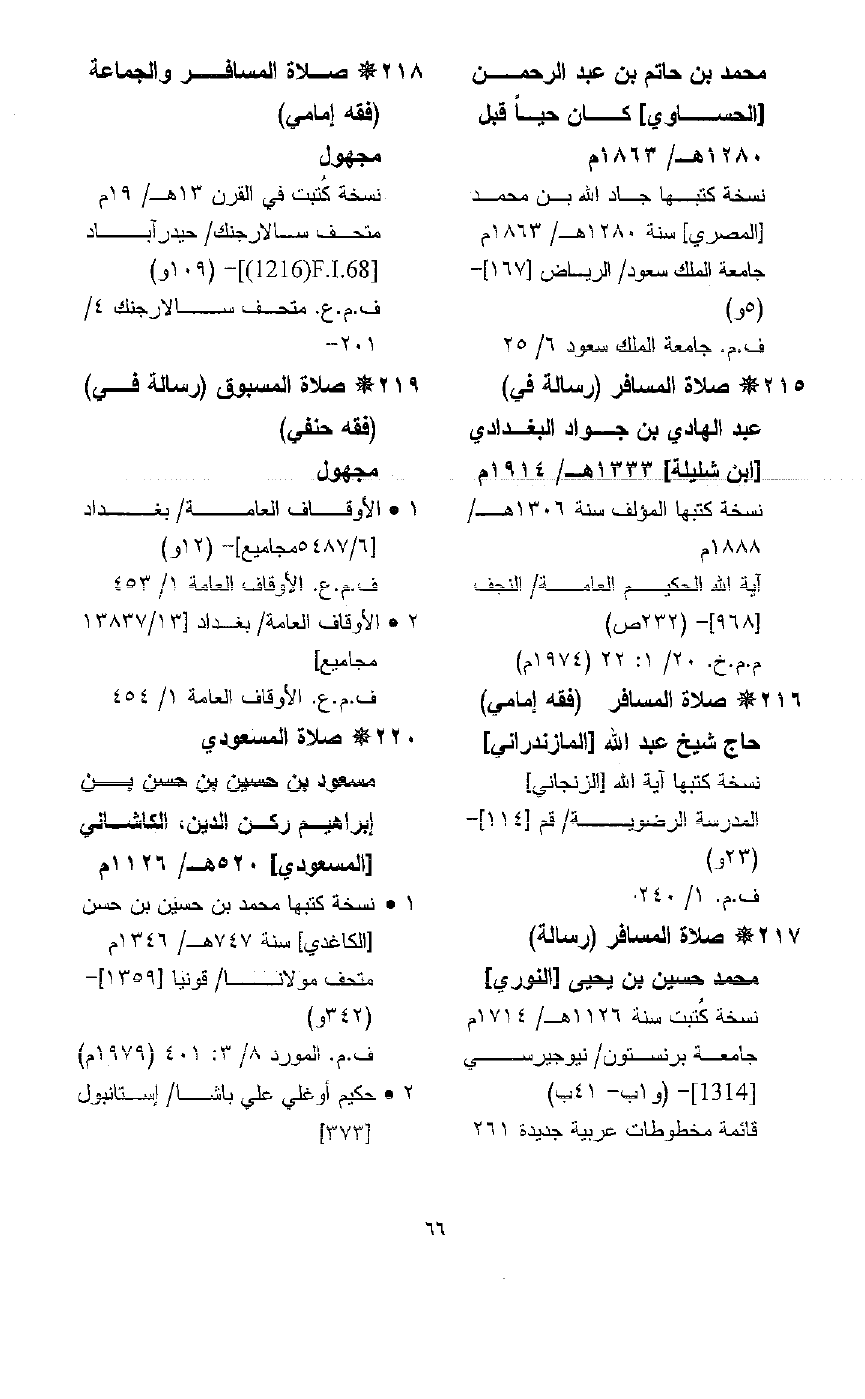 محمد بن حاتم بن عبد الرحمن
[الحساوي] كان حياً قبل
١٢٨٠هـ/ ١٨٦٣م
نسخة كتبها جاد الله بن محمد
[المصري] سنة ١٢٨٠هـ/ ١٨٦٣م
جامعة الملك سعود/ الرياض [١٦٧]-
(٥و)
ف.م. جامعة الملك سعود ٦/ ٢٥
٢١٥❋ صلاة المسافر (رسالة في)
عبد الهادي بن جواد البغدادي
[ابن شليلة] ١٣٣٣هـ/ ١٩١٤م
نسخة كتبها المؤلف سنة ١٣٠٦هـ/
١٨٨٨م
آية الله الحكيم العامة/ النجف
[٩٦٨]- (٢٣٢ص)
م.م.خ. ٢٠/ ١: ٢٢ (١٩٧٤م)
٢١٦❋ صلاة المسافر (فقه إمامي)
حاج شيخ عبد الله [المازندراني]
نسخة كتبها آية الله [الزنجاني]
المدرسة الرضوية/ قم [١١٤]-
(٢٣و)
ف.م. ١/ ٢٤٠
٢١٧❋ صلاة المسافر (رسالة)
محمد حسين بن يحيى [النوري]
نسخة كُتبت سنة ١١٢٦هـ/ ١٧١٤م
جامعة برنستون/ نيوجيرسي
[1314]- (و١ب- ٤١ب)
قائمة مخطوطات عربية جديدة ٢٦١
٢١٨❋ صلاة المسافر والجماعة
(فقه إمامي)
مجهول
نسخة كُتبت في القرن ١٣هـ/ ١٩م
متحف سالارجنك/ حيدرآباد
[F.I.68(1216)]- (١٠٩و)
ف.م.ع. متحف سالارجنك ٤/
٢٠١--
٢١٩❋ صلاة المسبوق (رسالة في)
(فقه حنفي)
مجهول
١ • الأوقاف العامة/ بغداد
[٥٤٨٧/٦مجاميع]- (١٢و)
ف.م.ع. الأوقاف العامة ١/ ٤٥٣
٢ • الأوقاف العامة/ بغداد [١٣٨٣٧/١٣
مجاميع]
ف.م.ع. الأوقاف العامة ١/ ٤٥٤
٢٢٠❋ صلاة المسعودي
مسعود بن حسين بن حسن بن
إبراهيم ركن الدين، الكاشاني
[المسعودي] ٥٢٠هـ/ ١١٢٦م
١ • نسخة كتبها محمد بن حسين بن حسن
[الكاغدي] سنة ٧٤٧هـ/ ١٣٤٦م
متحف مولانا/ قونيا [١٣٥٩]-
(٣٤٢و)
ف.م. المورد ٨/ ٣: ٤٠١ (١٩٧٩م)
٢ • حكيم أوغلي علي باشا/ إستانبول
[٣٧٣]
٦٦